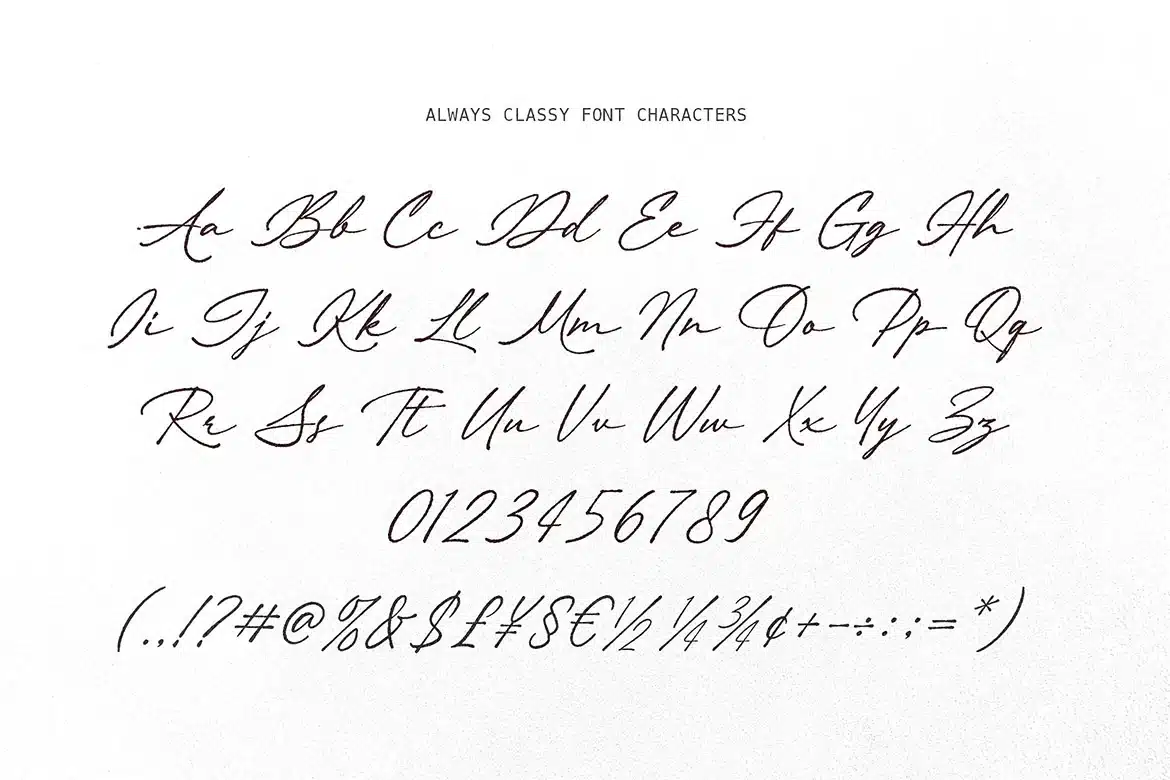 ALWAYS CLASSY FONT CHARACTERS
Aa Bb Cc Dd Ee Ff Gg Hh
Ii Jj Kk Ll Mm Nn Oo Pp Qq
Rr Ss Tt Uu Vv Ww Xx Yy Zz
0123456789
(.,!?#@%&$£¥§€½¼¾¢+-÷:;=*)